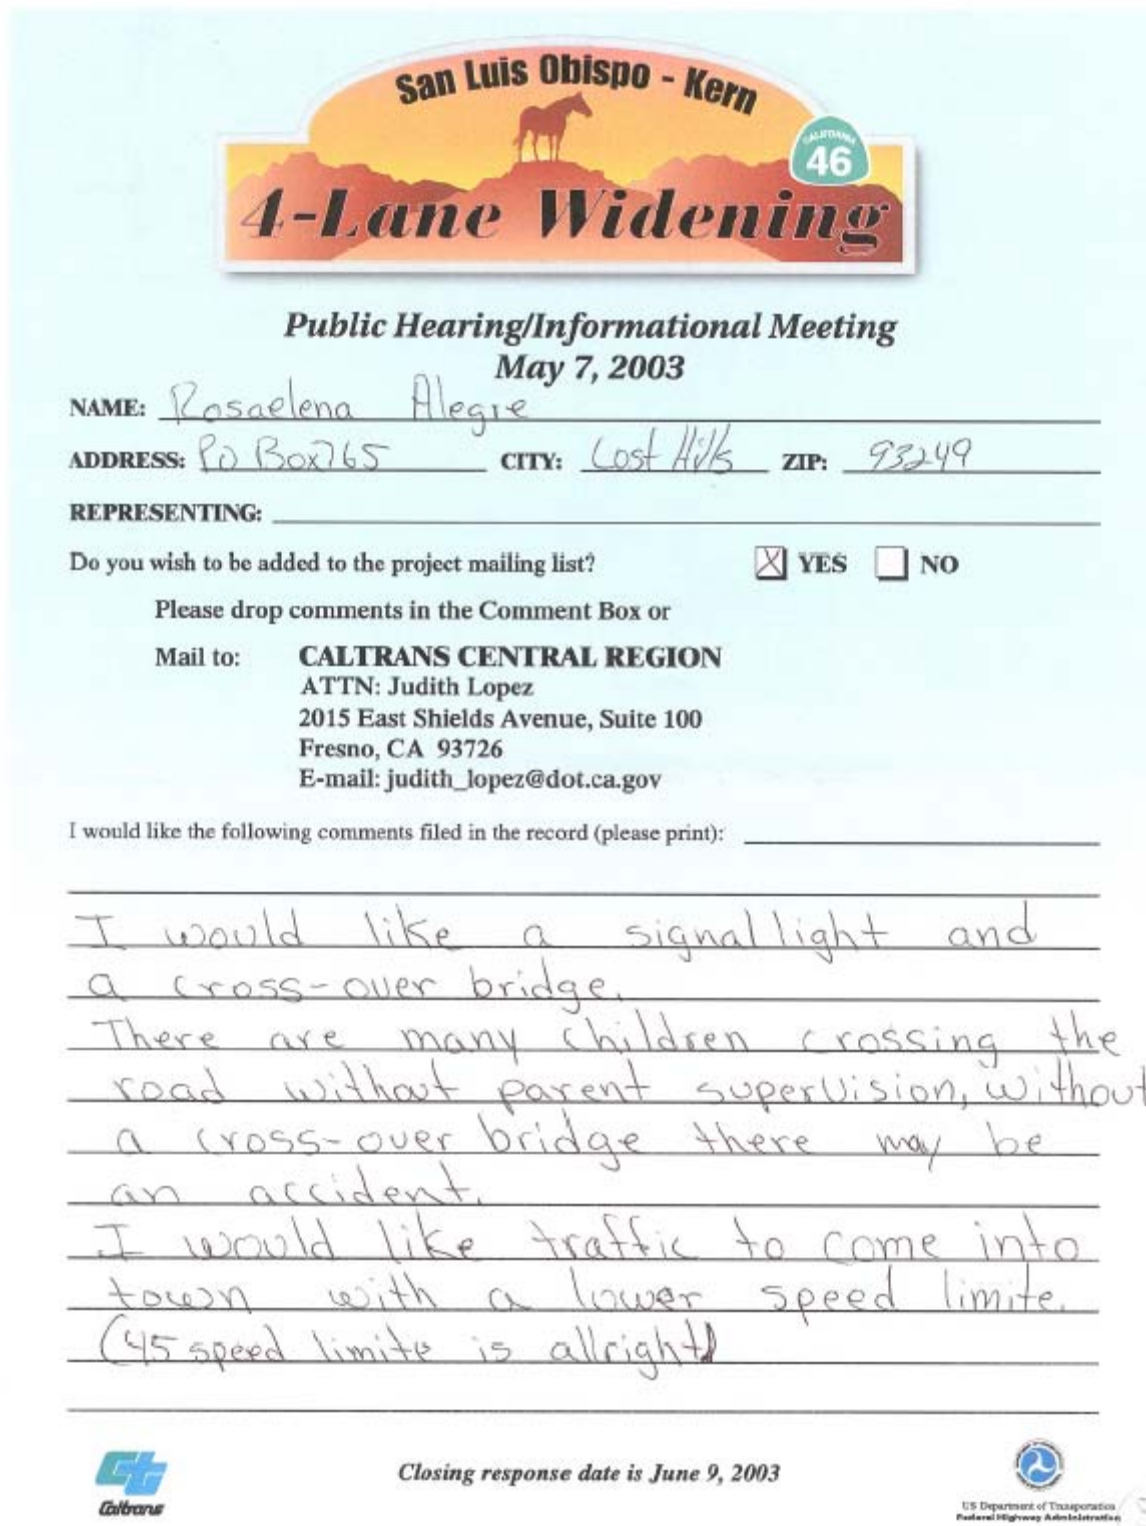 San Luis Obispo - Kern
CALIFORNIA
46
4-Lane Widening
Public Hearing/Informational Meeting
May 7, 2003
NAME: Rosaelena Alegre
ADDRESS: PO Box 765 CITY: Lost Hills ZIP: 93249
REPRESENTING:
Do you wish to be added to the project mailing list? X YES NO
Please drop comments in the Comment Box or
Mail to: CALTRANS CENTRAL REGION
ATTN: Judith Lopez
2015 East Shields Avenue, Suite 100
Fresno, CA 93726
E-mail: judith_lopez@dot.ca.gov
I would like the following comments filed in the record (please print):
I would like a signal light and
a cross-over bridge.
There are many children crossing the
road without parent supervision, without
a cross-over bridge there may be
an accident.
I would like traffic to come into
town with a lower speed limite.
(45 speed limite is allright)
Closing response date is June 9, 2003
Caltrans
US Department of Transportation
Federal Highway Administration